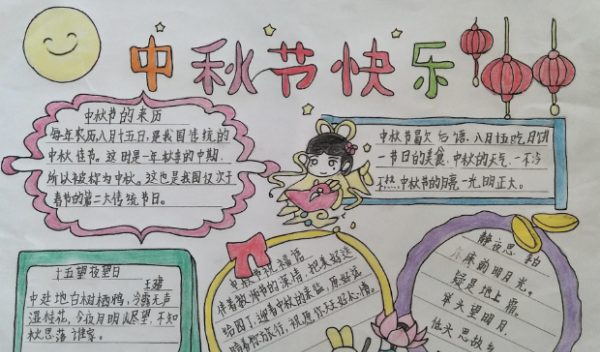 中秋节快乐
中秋节的来历
每年农历八月十五日,是我国传统的
中秋佳节。这时是一年秋季的中期,
所以被称为中秋。这也是我国仅次于
春节的第二大传统节日。
中秋节歇后语、八月十五吃月饼
一节日的美食、中秋的天气、一不冷
不热 中秋节的月亮、一光明正大。
十五望夜望日
王建
中地白树栖鸦,冷露无声
湿桂花,今夜月明人尽望,不知
秋思落谁家。
中秋节祝福语
静夜思 李白
床前明月光。
疑是地上霜。
举头望明月,
低头思故乡